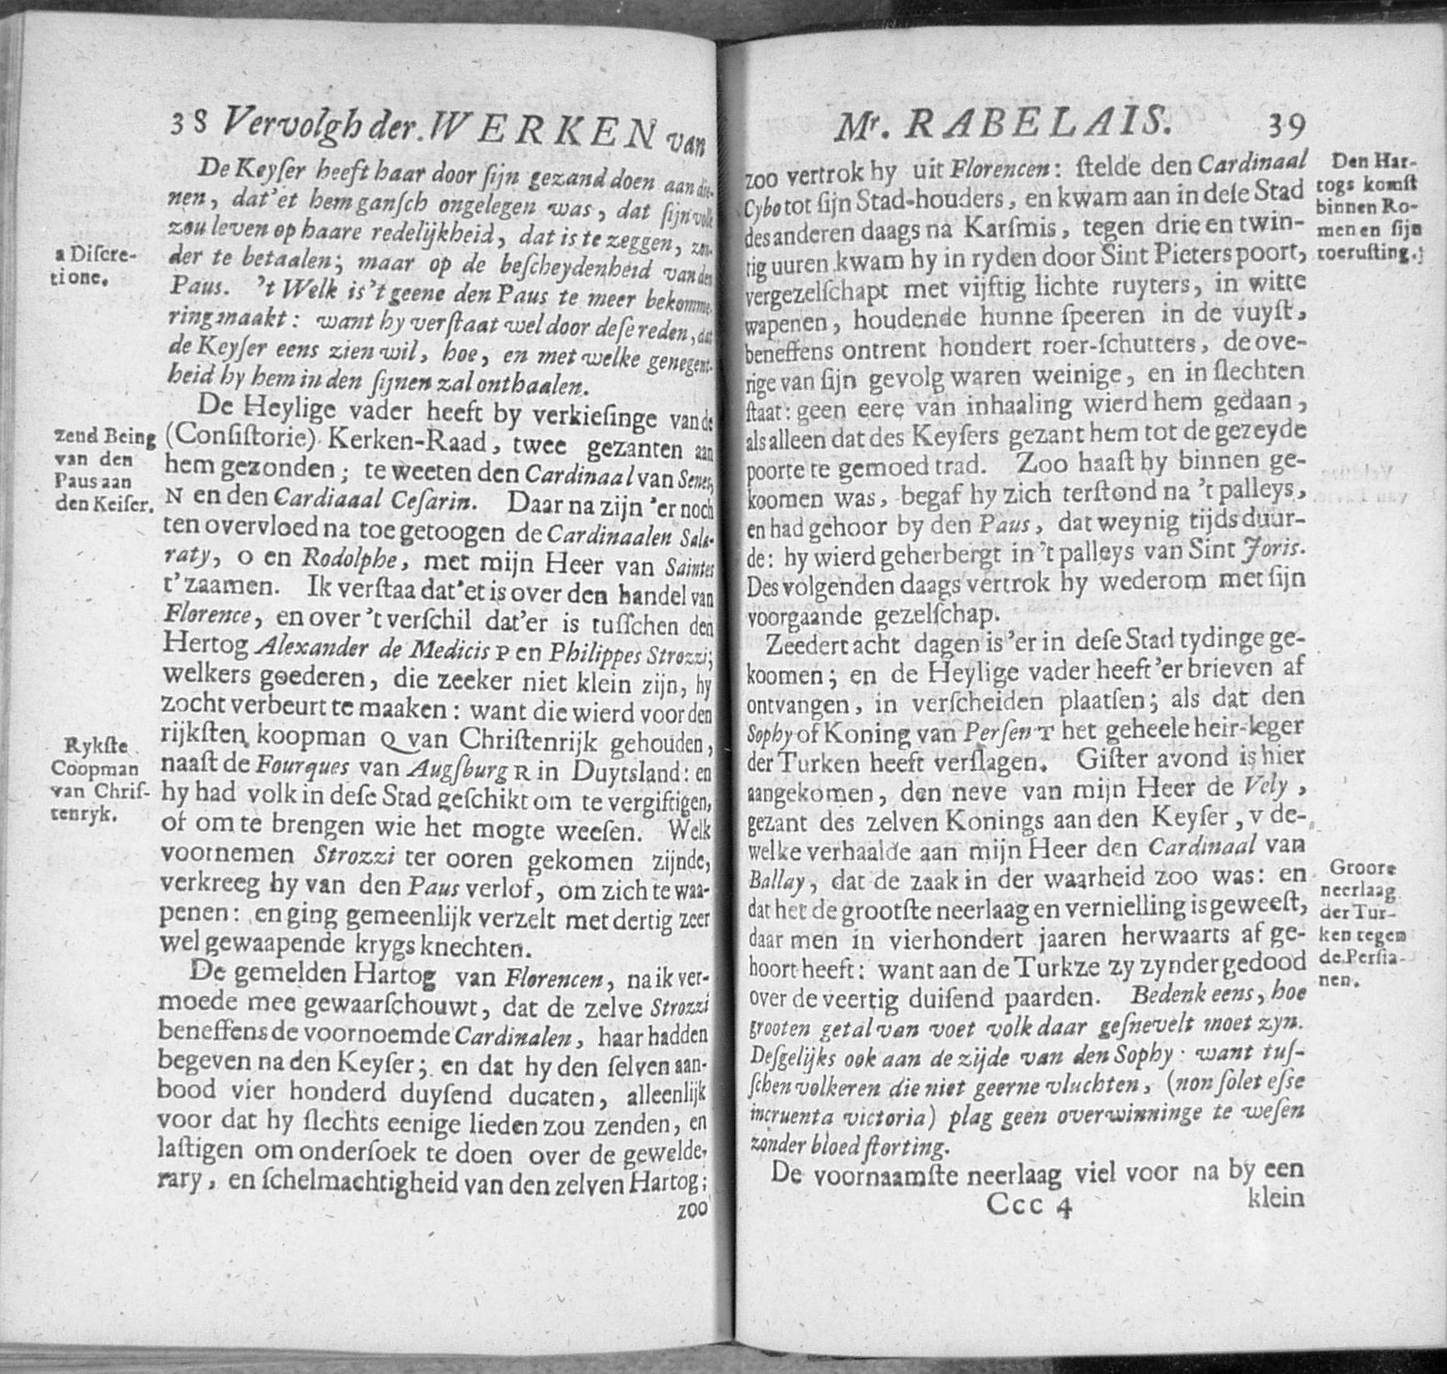 38 Vervolgh der. WERKEN van
De Keyſer heeft haar door ſijn gezand doen aandie-
nen, dat'et hem ganſch ongelegen was, dat ſijn volk
zou leven op haare redelijkheid, dat is te zeggen, zon-
der te betaalen; maar op de beſcheydenheid van den
Paus. 't Welk is 't geene den Paus te meer bekomme-
ring maakt: want hy verſtaat wel door deſe reden, dat
de Keyſer eens zien wil, hoe, en met welke genegent-
heid hy hem in den ſijnen zal onthaalen.
a Diſcre-
tione.
De Heylige vader heeft by verkieſinge van de
(Conſiſtorie) Kerken-Raad, twee gezanten aan
hem gezonden; te weeten den Cardinaal van Senes,
N en den Cardiaaal Ceſarin. Daar na zijn 'er noch
ten overvloed na toe getoogen de Cardinaalen Sala-
raty, O en Rodolphe, met mijn Heer van Saintes
t'zaamen. Ik verſtaa dat'et is over den handel van
Florence, en over 't verſchil dat'er is tuſſchen den
Hertog Alexander de Medicis P en Philippes Strozzi;
welkers goederen, die zeeker niet klein zijn, hy
zocht verbeurt te maaken: want die wierd voor den
rijkſten koopman Q van Chriſtenrijk gehouden,
naaſt de Fourques van Augſburg R in Duytsland: en
hy had volk in deſe Stad geſchikt om te vergiftigen,
of om te brengen wie het mogte weeſen. Welk
voornemen Strozzi ter ooren gekomen zijnde,
verkreeg hy van den Paus verlof, om zich te waa-
penen: en ging gemeenlijk verzelt met dertig zeer
wel gewaapende krygs knechten.
zend Being
van den
Paus aan
den Keiſer.
Rykſte
Coopman
van Chriſ-
tenryk.
De gemelden Hartog van Florencen, na ik ver-
moede mee gewaarſchouwt, dat de zelve Strozzi
beneffens de voornoemde Cardinalen, haar hadden
begeven na den Keyſer; en dat hy den ſelven aan-
bood vier honderd duyſend ducaten, alleenlijk
voor dat hy ſlechts eenige lieden zou zenden, en
laſtigen om onderſoek te doen over de gewelde-
rary, en ſchelmachtigheid van den zelven Hartog;
zoo
Mr. RABELAIS. 39
zoo vertrok hy uit Florencen: ſtelde den Cardinaal
Cybo tot ſijn Stad-houders, en kwam aan in deſe Stad
des anderen daags na Karſmis, tegen drie en twin-
tig uuren kwam hy in ryden door Sint Pieters poort,
vergezelſchapt met vijftig lichte ruyters, in witte
wapenen, houdende hunne ſpeeren in de vuyſt,
beneffens ontrent hondert roer-ſchutters, de ove-
rige van ſijn gevolg waren weinige, en in ſlechten
ſtaat: geen eere van inhaaling wierd hem gedaan,
als alleen dat des Keyſers gezant hem tot de gezeyde
poorte te gemoed trad. Zoo haaſt hy binnen ge-
koomen was, begaf hy zich terſtond na 't palleys,
en had gehoor by den Paus, dat weynig tijds duur-
de: hy wierd geherbergt in 't palleys van Sint Joris.
Des volgenden daags vertrok hy wederom met ſijn
voorgaande gezelſchap.
Den Har-
togs komſt
binnen Ro-
men en ſijn
toeruſting.
Zeedert acht dagen is 'er in deſe Stad tydinge ge-
koomen; en de Heylige vader heeft 'er brieven af
ontvangen, in verſcheiden plaatſen; als dat den
Sophy of Koning van Perſen T het geheele heir-leger
der Turken heeft verſlagen. Giſter avond is hier
aangekomen, den neve van mijn Heer de Vely,
gezant des zelven Konings aan den Keyſer, V de-
welke verhaalde aan mijn Heer den Cardinaal van
Ballay, dat de zaak in der waarheid zoo was: en
dat het de grootſte neerlaag en vernielling is geweeſt,
daar men in vierhondert jaaren herwaarts af ge-
hoort heeft: want aan de Turkze zy zynder gedood
over de veertig duiſend paarden. Bedenk eens, hoe
grooten getal van voet volk daar geſnevelt moet zyn.
Deſgelijks ook aan de zijde van den Sophy: want tuſ-
ſchen volkeren die niet geerne vluchten, (non ſolet eſſe
incruenta victoria) plag geen overwinninge te weſen
zonder bloed ſtorting.
Groote
neerlaag
der Tur-
ken tegen
de Perſia-
nen.
De voornaamſte neerlaag viel voor na by een
Ccc 4 klein